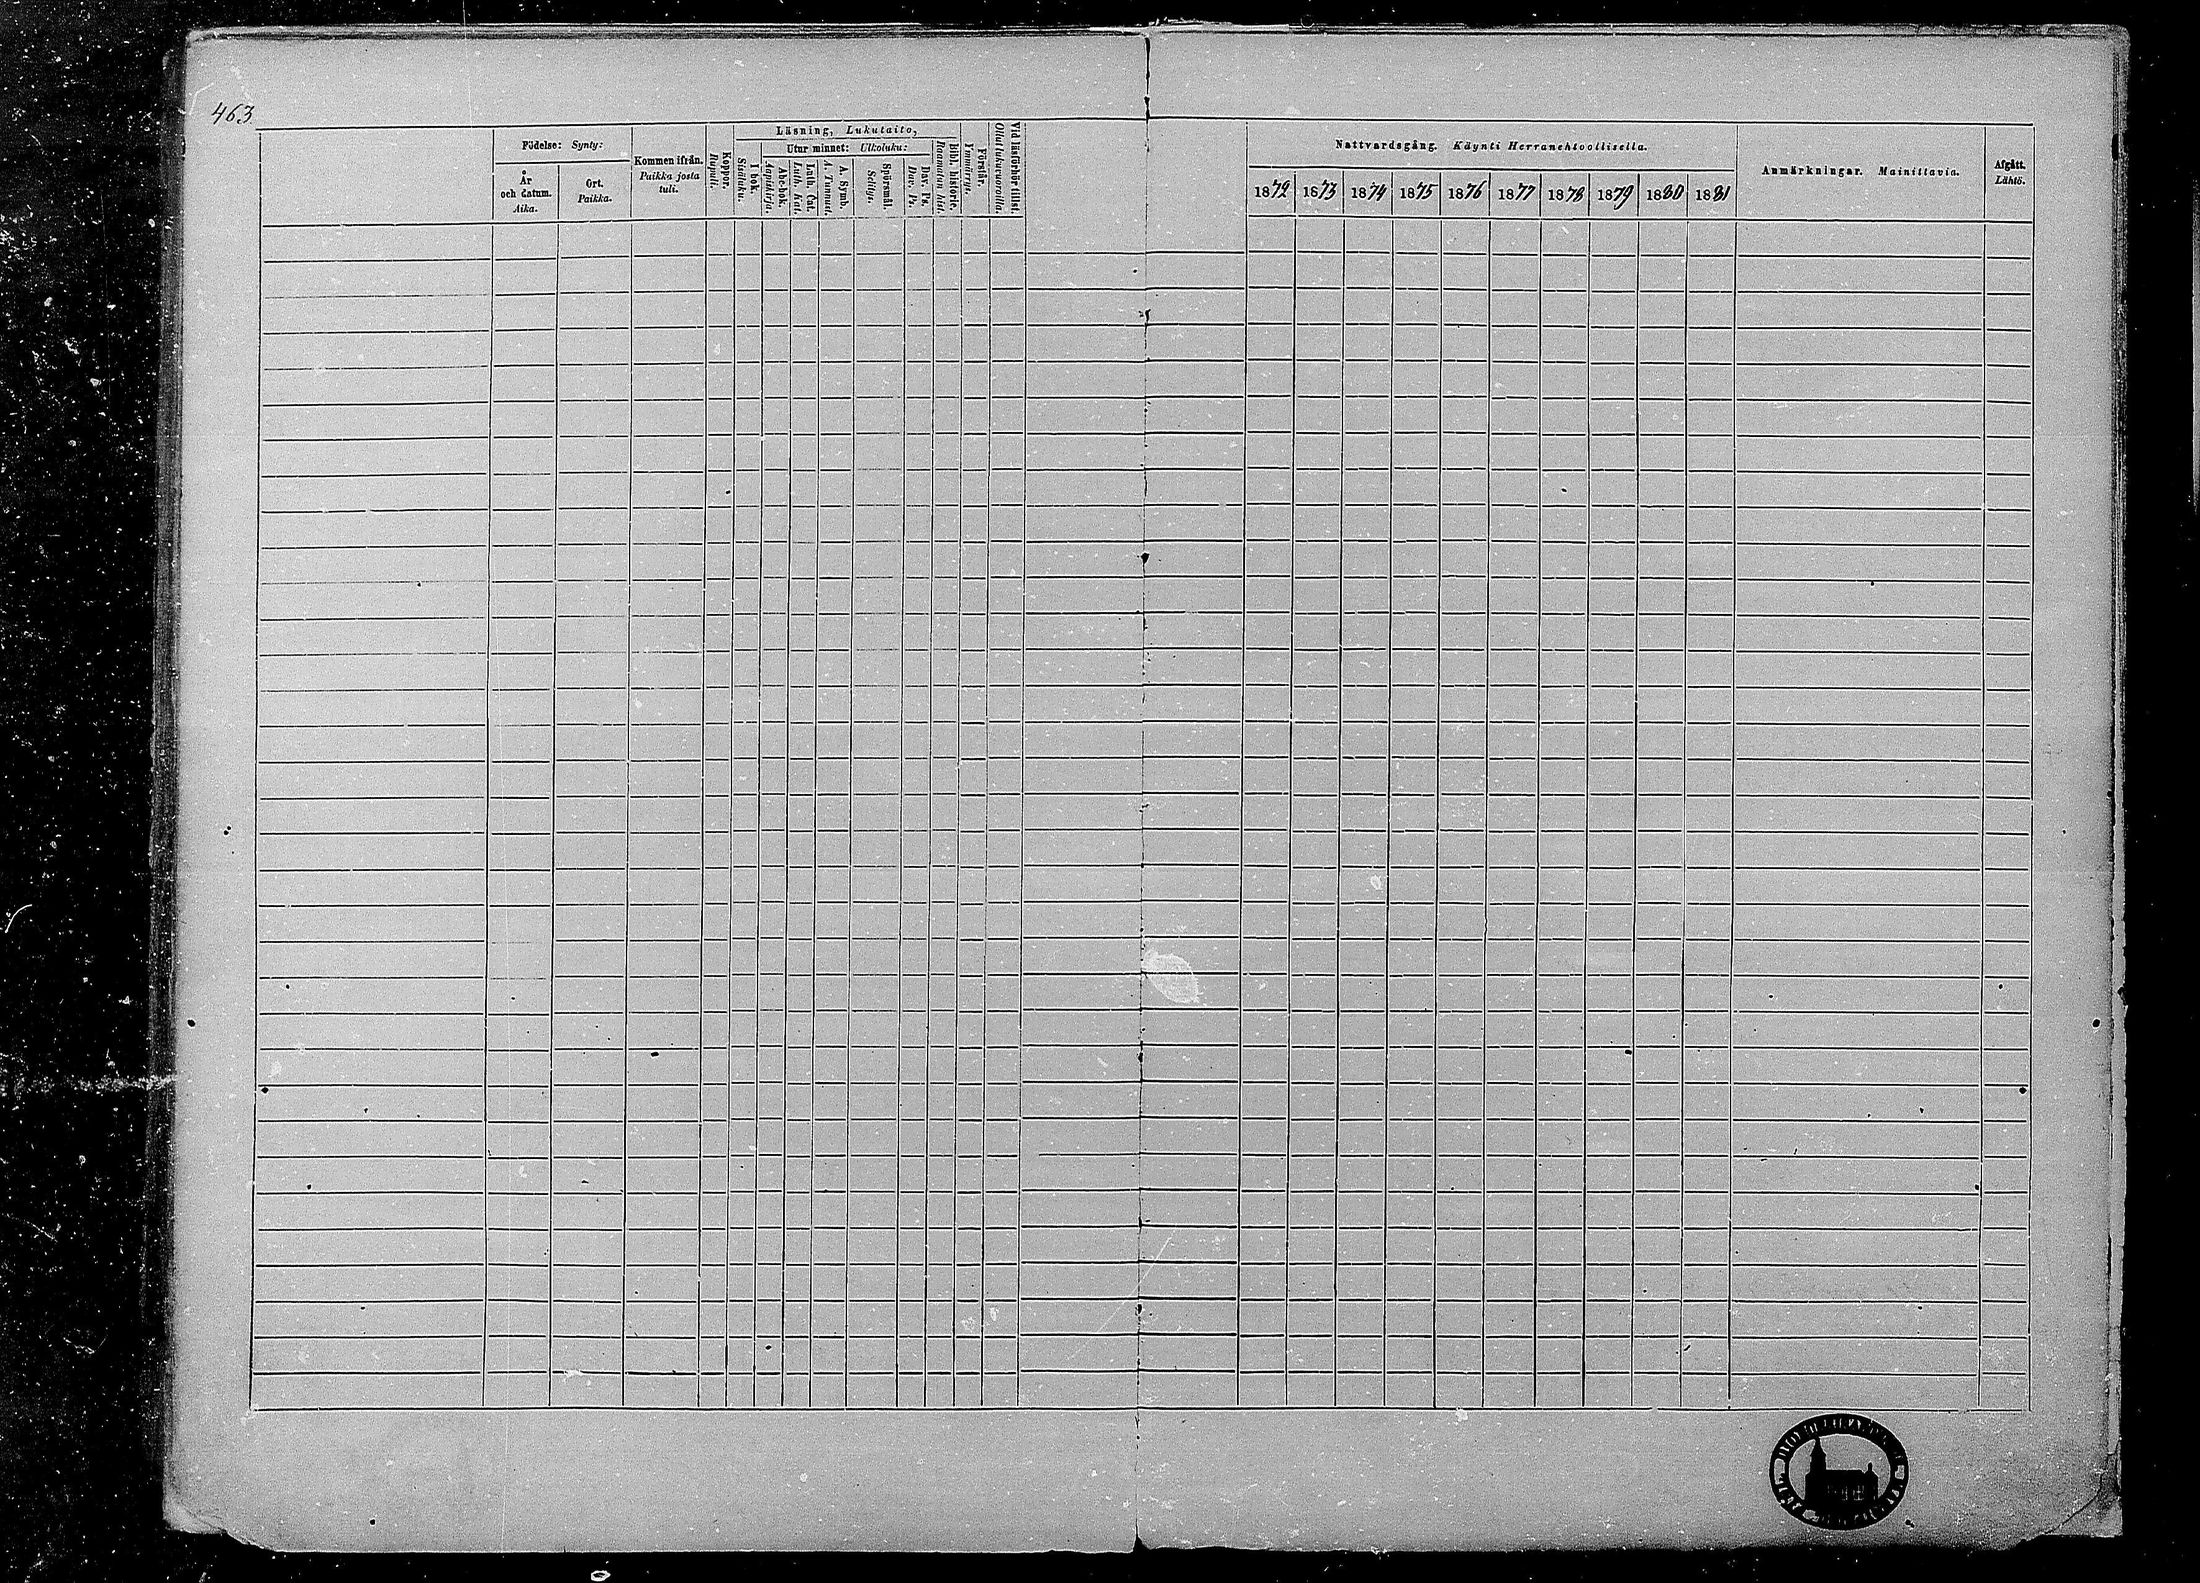 463
Födelse: Synty:
År och datum. Aika.
Ort. Paikka.
Kommen ifrån. Paikka josta tuli.
Koppor. Rupuli.
Läsning, Lukutaito,
I bok. Sisäluku.
Utur minnet: Ulkoluku:
Abc-bok. Aapiskirja.
Luth. Cat. Luth. Kat.
A. Symb. A. Tunnust.
Spörsmål. Selitys.
Dav. Ps. Dav. Ps.
Bibl. historie. Raamatun hist.
Förstår. Ymmärrys.
Vid läsförhör tillst. Ollut lukuvuoroilla.
Nattvardsgång. Käynti Herranehtoollisella.
1872 1873 1874 1875 1876 1877 1878 1879 1880 1881
Anmärkningar. Mainittavia.
Afgått. Lähtö.